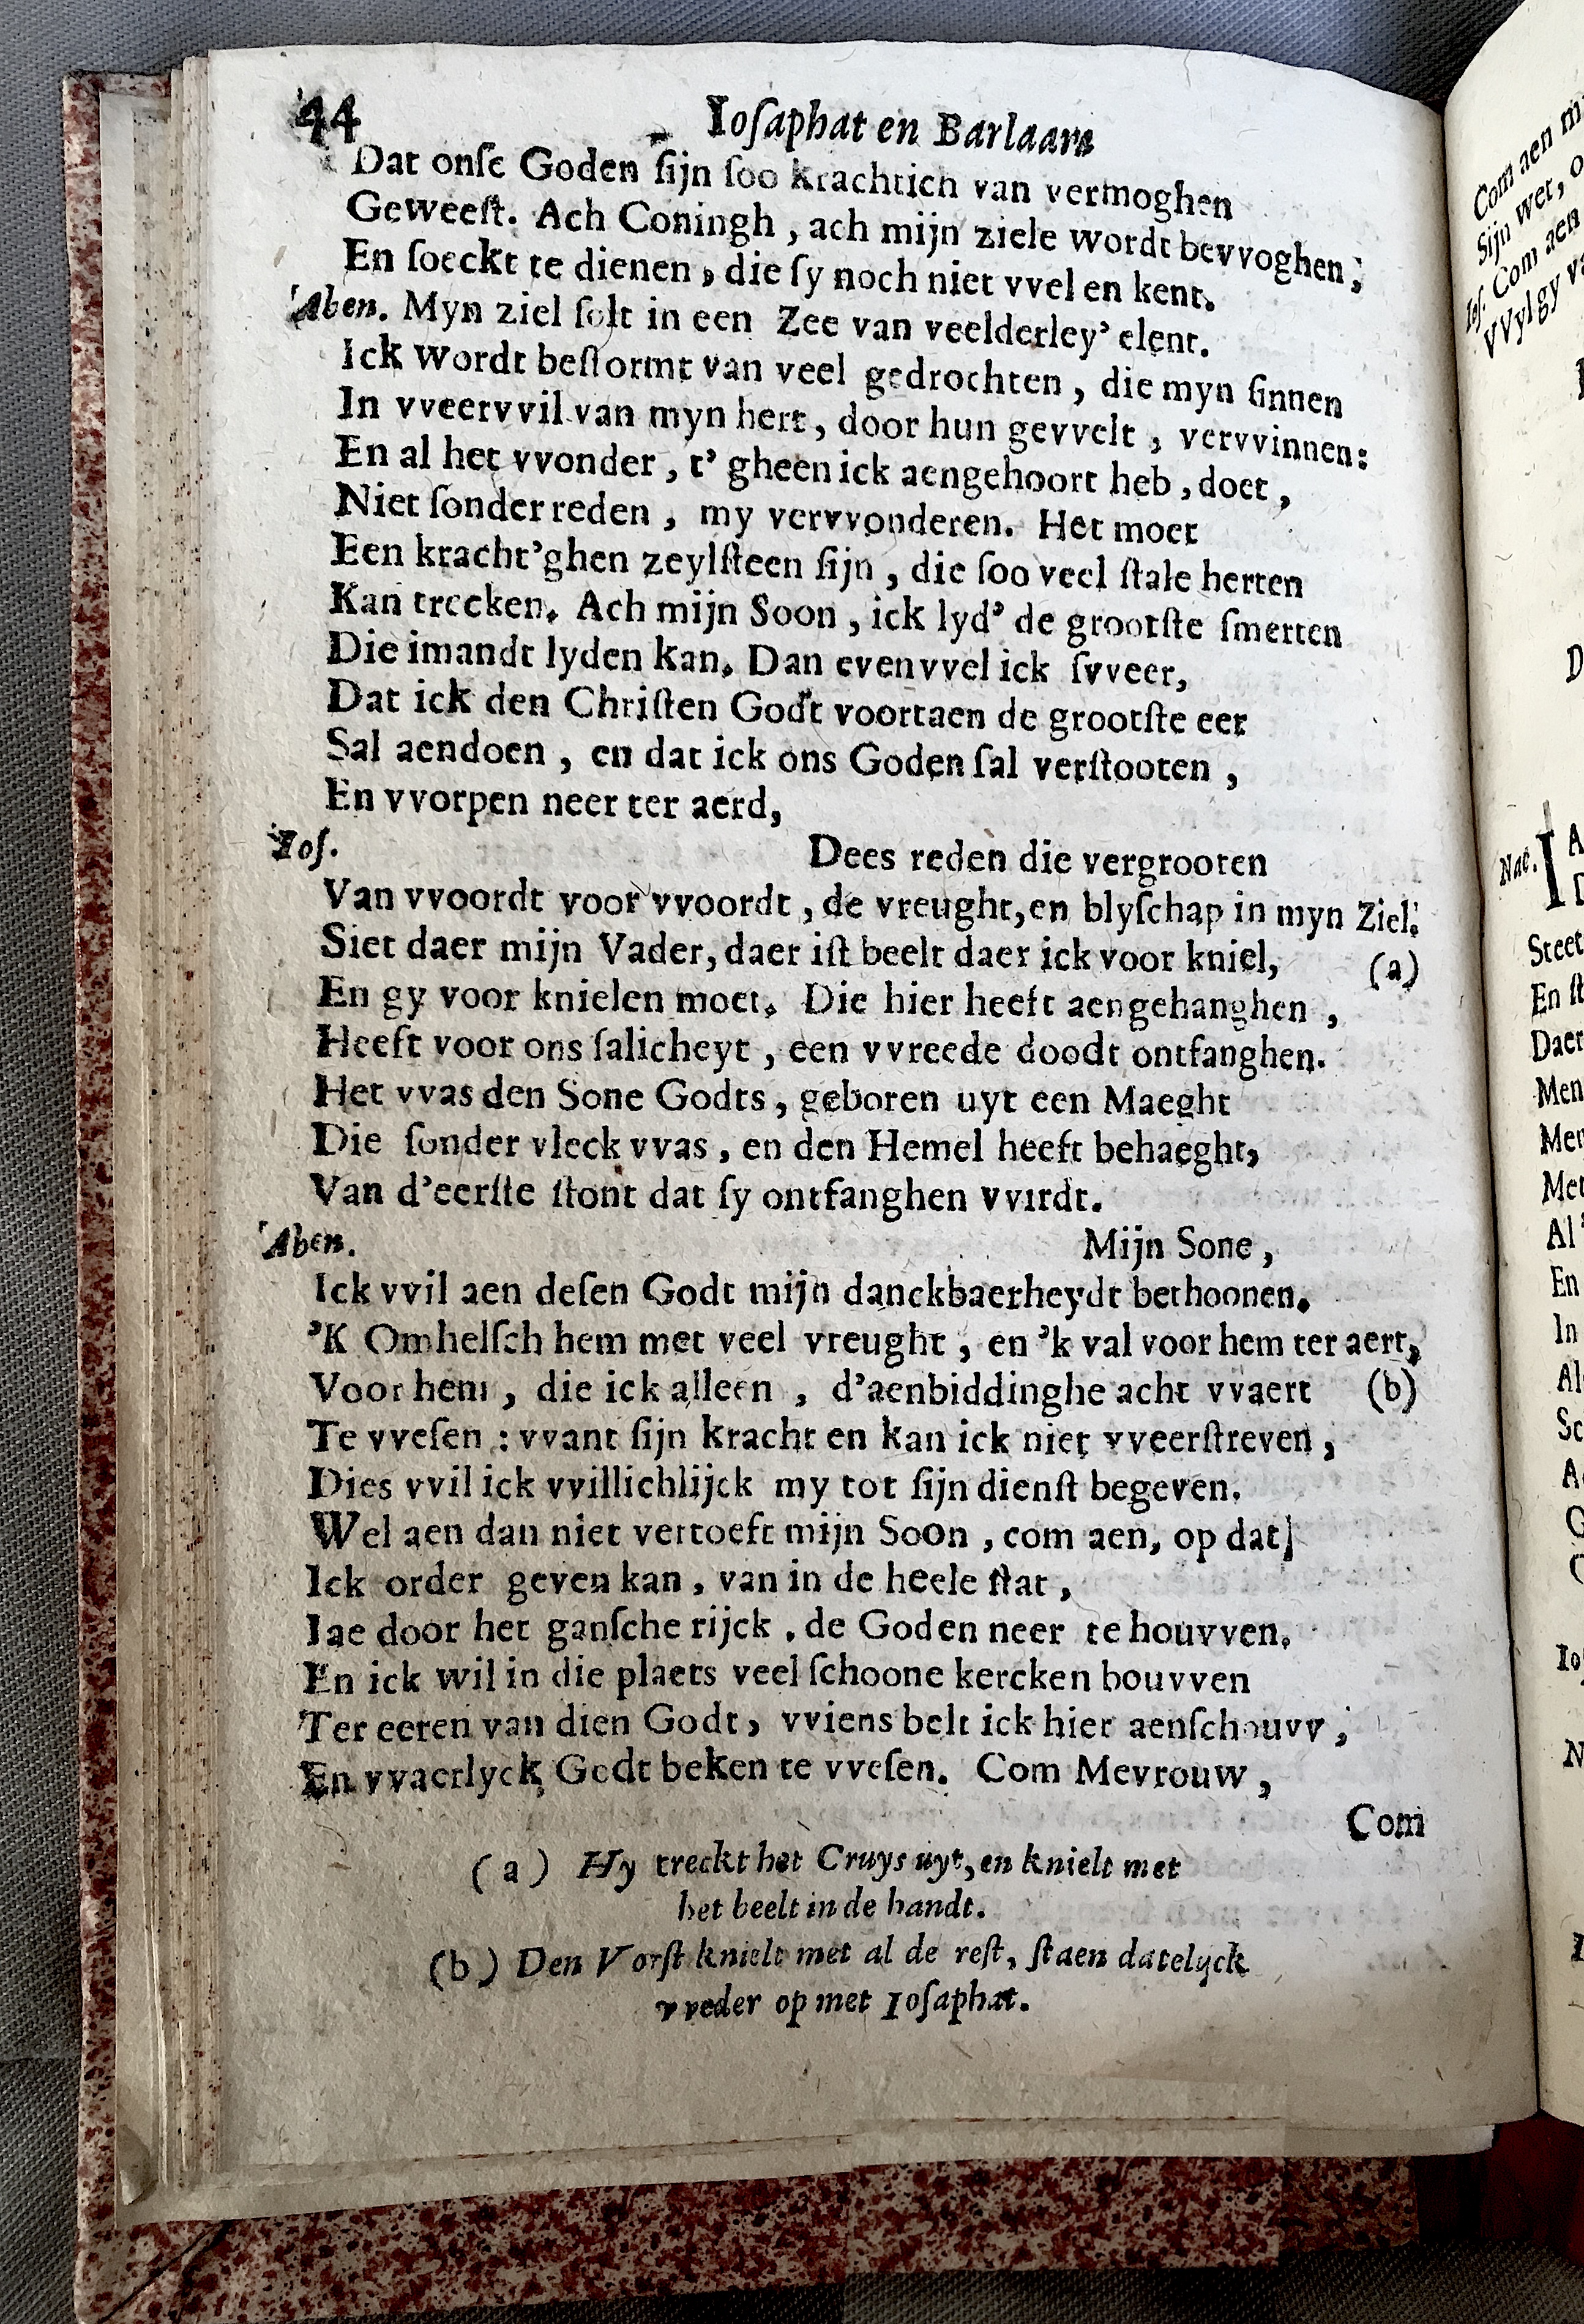 44 Ioſaphat en Barlaam
Dat onſe Goden ſijn ſoo krachtich van vermoghen
Geweeſt. Ach Coningh, ach mijn ziele wordt bevvoghen,
En ſoeckt te dienen, die ſy noch niet vvel en kent.
Aben. Myn ziel ſolt in een Zee van veelderley' elent.
Ick wordt beſtormt van veel gedrochten, die myn ſinnen
In vveervvil van myn hert, door hun gevvelt, vervvinnen:
En al het vvonder, t' gheen ick aengehoort heb, doet,
Niet ſonder reden, my vervvonderen. Het moet
Een kracht'ghen zeylſteen ſijn, die ſoo veel ſtale herten
Kan trecken. Ach mijn Soon, ick lyd' de grootſte ſmerten
Die imandt lyden kan. Dan evenvvel ick ſvveer,
Dat ick den Chriſten Godt voortaen de grootſte eer
Sal aendoen, en dat ick ons Goden ſal verſtooten,
En vvorpen neer ter aerd,
Ioſ. Dees reden die vergrooten
Van vvoordt voor vvoordt, de vreught, en blyſchap in myn Ziel.
Siet daer mijn Vader, daer iſt beelt daer ick voor kniel, (a)
En gy voor knielen moet. Die hier heeft aengehanghen,
Heeft voor ons ſalicheyt, een vvreede doodt ontfanghen.
Het vvas den Sone Godts, geboren uyt een Maeght
Die ſonder vleck vvas, en den Hemel heeft behaeght,
Van d'eerſte ſtont dat ſy ontfanghen vvirdt.
Aben. Mijn Sone,
Ick vvil aen deſen Godt mijn danckbaerheydt bethoonen.
'K Omhelſch hem met veel vreught, en 'k val voor hem ter aert,
Voor hem, die ick alleen, d'aenbiddinghe acht vvaert (b)
Te vveſen: vvant ſijn kracht en kan ick niet vveerſtreven,
Dies vvil ick vvillichlijck my tot ſijn dienſt begeven.
Wel aen dan niet vertoeft mijn Soon, com aen, op dat
Ick order geven kan, van in de heele ſtat,
Iae door het ganſche rijck, de Goden neer te houvven,
En ick wil in die plaets veel ſchoone kercken bouvven
Ter eeren van dien Godt, vviens belt ick hier aenſchouvv,
En vvaerlyck Godt beken te vveſen. Com Mevrouw,
Com
(a) Hy treckt het Cruys uyt, en knielt met
het beelt in de handt.
(b) Den Vorſt knielt met al de reſt, ſtaen datelyck
vveder op met Ioſaphat.
Com aen
Sijn wet,
Ioſ. Com aen
VVyl gy
Nae.
Steet
En
Daer
Men
Met
Al
En
In